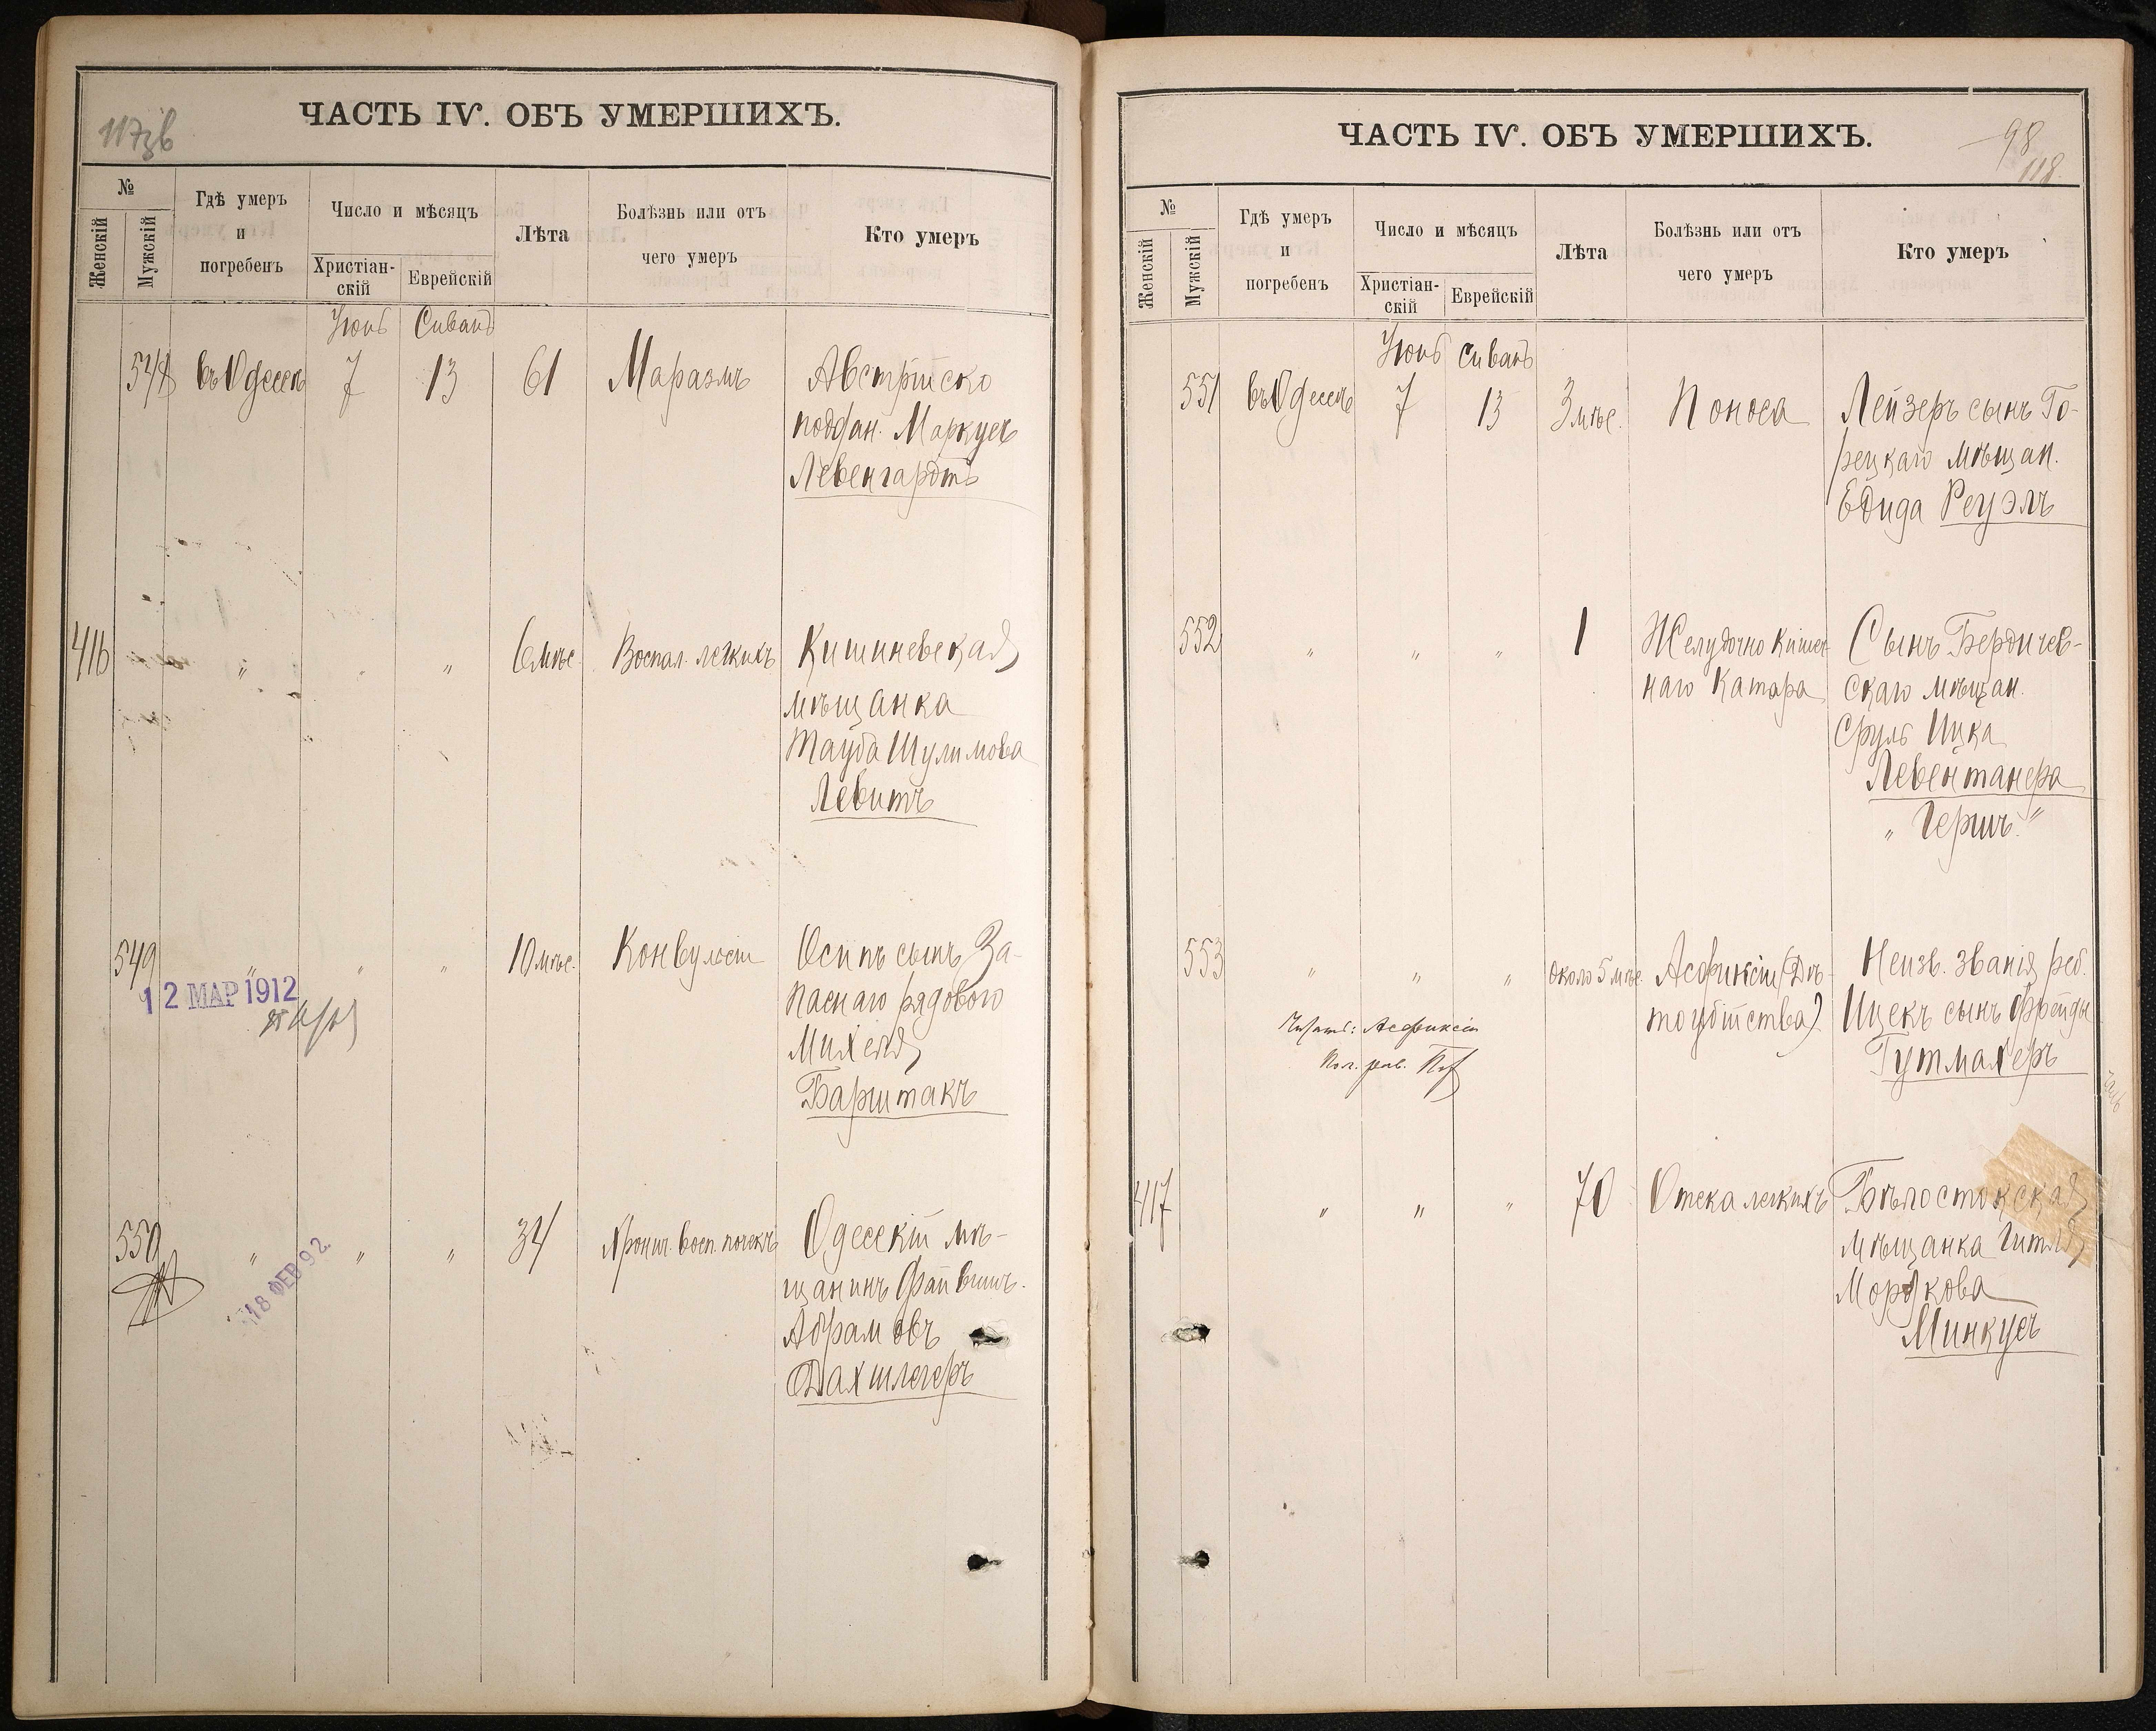 117об
ЧАСТЬ IV. ОБЪ УМЕРШИХЪ.
№
Женскій
Мужскій
Гдѣ умеръ
и
погребенъ
Число и мѣсяцъ
Христіан-
скій
Еврейскій
Лѣта
Болѣзнь или отъ
чего умеръ
Кто умеръ
Іюнь Сиванъ
548 въ Одессѣ 7 13 61 Маразмъ Австрійско
поддан. Маркусъ
Левенгардтъ
416 " " " 6 мѣс. Воспал. легкихъ Кишиневская
мѣщанка
Тауба Шулимова
Левитъ
549 " " " 10 мѣс. Конвульсіи Осипъ сынъ За-
паснаго рядового
Михеля
Барштакъ
12 МАР 1912
550 " " " 34 Хронич. восп. почекъ Одесскій мѣ-
щанинъ Файвишъ
Абрамовъ
Дахшлегеръ
18 ФЕВ 92.
ЧАСТЬ IV. ОБЪ УМЕРШИХЪ.
98
118
№
Женскій
Мужскій
Гдѣ умеръ
и
погребенъ
Число и мѣсяцъ
Христіан-
скій
Еврейскій
Лѣта
Болѣзнь или отъ
чего умеръ
Кто умеръ
Іюнь Сиванъ
551 въ Одессѣ 7 13 3 мѣс. Поноса Лейзеръ сынъ Го-
рецкаго мѣщан.
Едида Реуэлъ
552 " " " 1 Желудочно Кишеч-
наго Катара
Сынъ Бердичев-
скаго мѣщан.
Сруль Ицка
Левентанера
„Гершъ"
553 " " " около 5 мѣс. Асфиксіи (Дѣ-
тоубійства)
Неизв. званія реб.
Ицекъ сынъ Фрейды
Гутмахеръ
Читать: Асфиксіи
417 " " " 70 Отека легкихъ Бѣлостокская
мѣщанка Гитля
Мордкова
Минкусъ